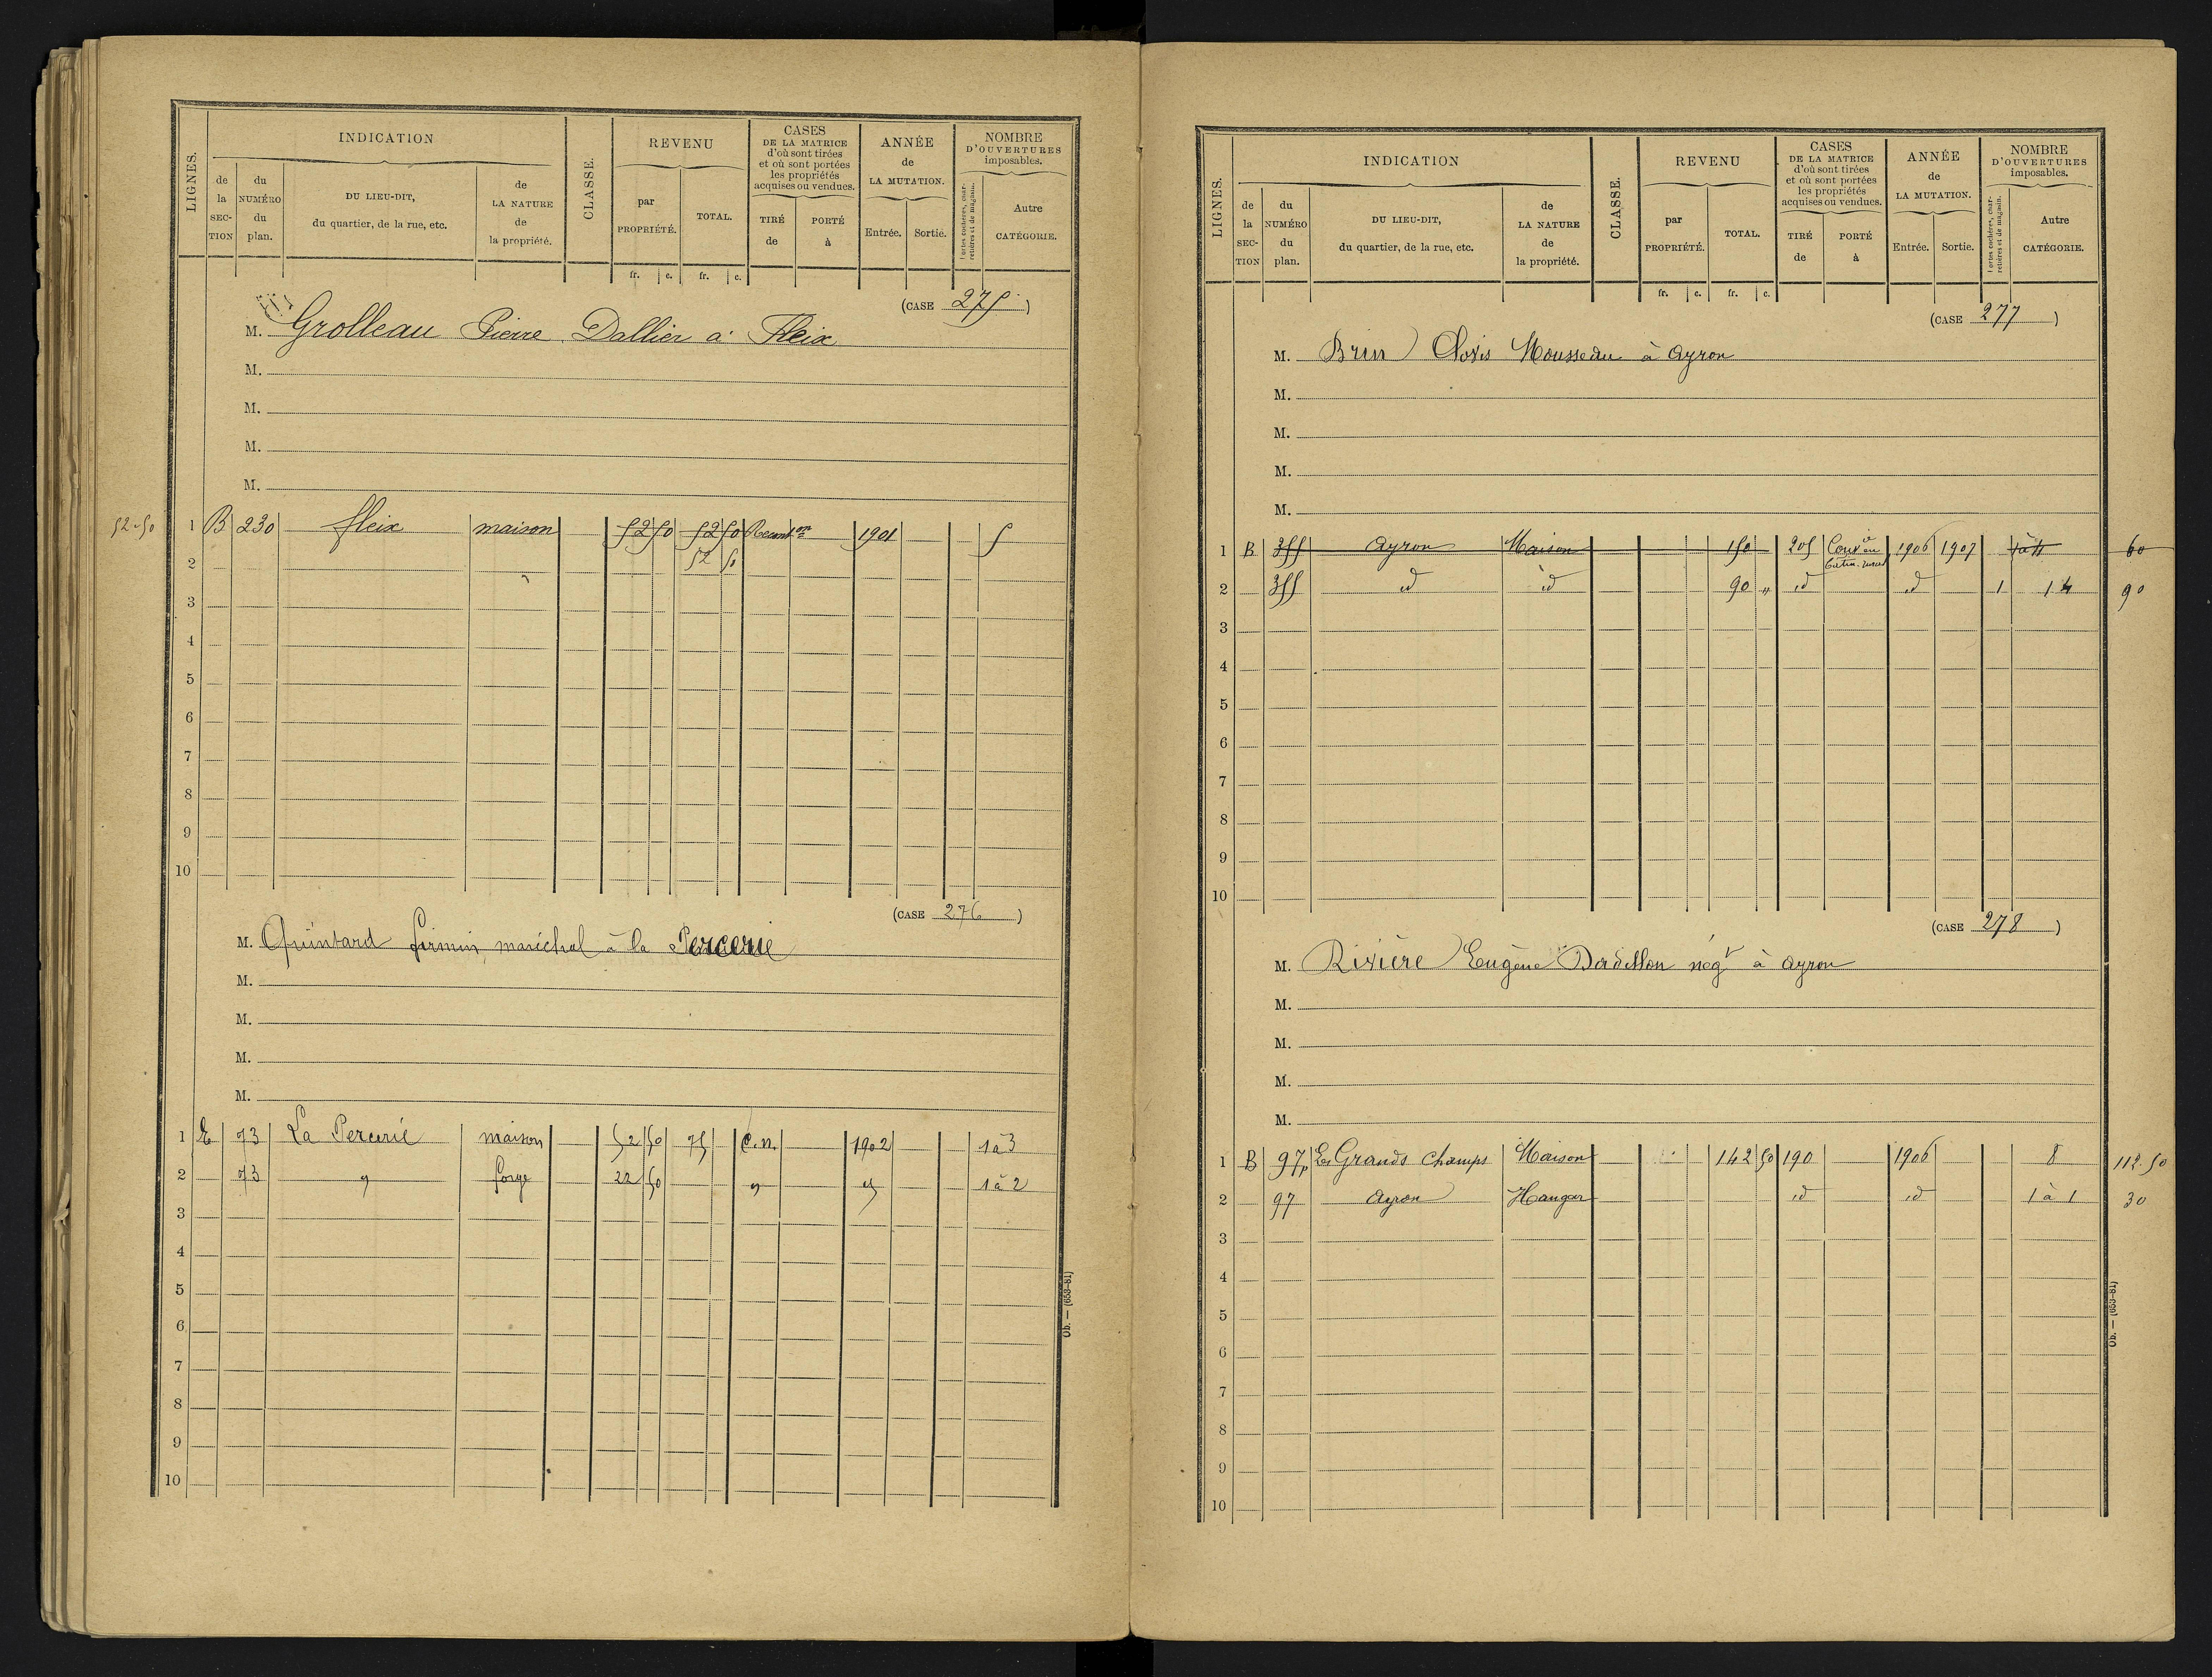 LIGNES.
INDICATION
de la SECTION
du NUMÉRO du plan.
DU LIEU-DIT, du quartier, de la rue, etc.
de LA NATURE de la propriété.
CLASSE.
REVENU
par PROPRIÉTÉ.
TOTAL.
CASES DE LA MATRICE d'où sont tirées et où sont portées les propriétés acquises ou vendues.
TIRÉ de
PORTÉ à
ANNÉE de LA MUTATION.
Entrée.
Sortie.
NOMBRE D'OUVERTURES imposables.
Portes cochères, charretières et de magasin.
Autre CATÉGORIE.
fr. c. fr. c.
(CASE 275)
M. Grolleau Pierre Dallier à Fleix
M.
M.
M.
M.
52.50 1 B 230 fleix maison 52 50 52 50 1901 5
2 52 50
3
4
5
6
7
8
9
10
(CASE 276)
M. Quintard firmin, maréchal à la Percerie
M.
M.
M.
M.
1 E 73 La Percerie maison 52 50 75 C.n. 1902 1à3
2 73 " forge 22 50 " " 1à2
3
4
5
6
7
8
9
10
Ob. — (653-81)
LIGNES.
INDICATION
de la SECTION
du NUMÉRO du plan.
DU LIEU-DIT, du quartier, de la rue, etc.
de LA NATURE de la propriété.
CLASSE.
REVENU
par PROPRIÉTÉ.
TOTAL.
CASES DE LA MATRICE d'où sont tirées et où sont portées les propriétés acquises ou vendues.
TIRÉ de
PORTÉ à
ANNÉE de LA MUTATION.
Entrée.
Sortie.
NOMBRE D'OUVERTURES imposables.
Portes cochères, charretières et de magasin.
Autre CATÉGORIE.
fr. c. fr. c.
(CASE 277)
M. Brin Clovis Mousseau à Ayron
M.
M.
M.
M.
1 B 355 Ayron Maison 150 205 1906 1907 60
2 355 id id 90 " id id 1 14 90
3
4
5
6
7
8
9
10
(CASE 278)
M. Rivière Eugène négt à Ayron
M.
M.
M.
M.
1 B 97p Les Grands Champs Maison 142 50 190 1906 8 112.50
2 97 Ayron Hangar id id 1 à 1 30
3
4
5
6
7
8
9
10
Ob. — (653-81)